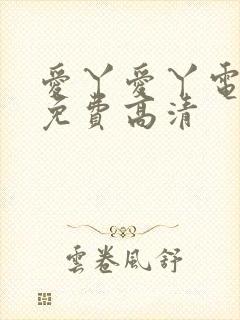 愛丫愛丫電
免費高清
雲卷風舒